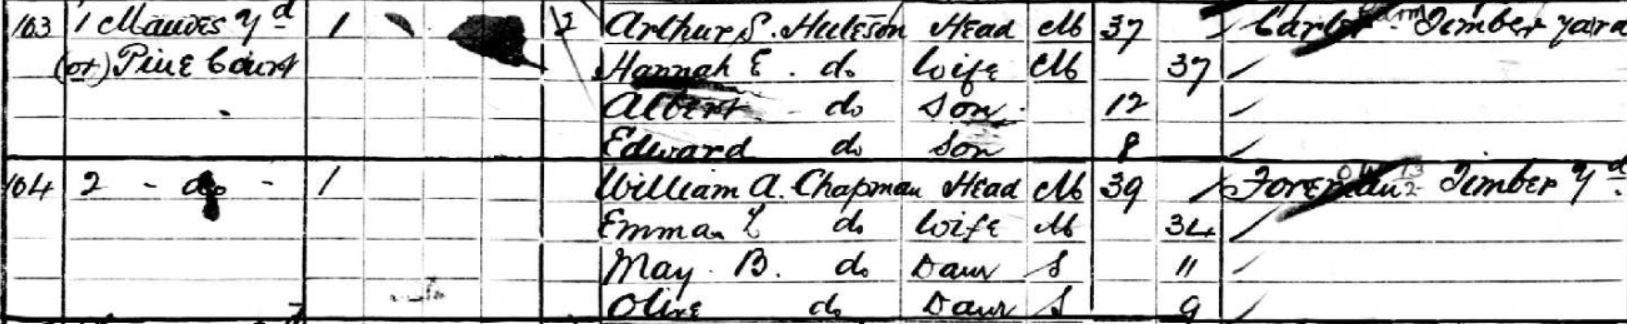 103 1 Mawdes Yd 1 2 Arthur S. Huleson Head M 37 Carter Timber yard
(or) Pine Court Hannah E. do Wife M 37
Albert do Son 12
Edward do Son 8
104 2 - do - 1 William A. Chapman Head M 39 Foreman Timber Yd.
Emma L do Wife M 34
May B. do Daur S 11
Olive do Daur S 9